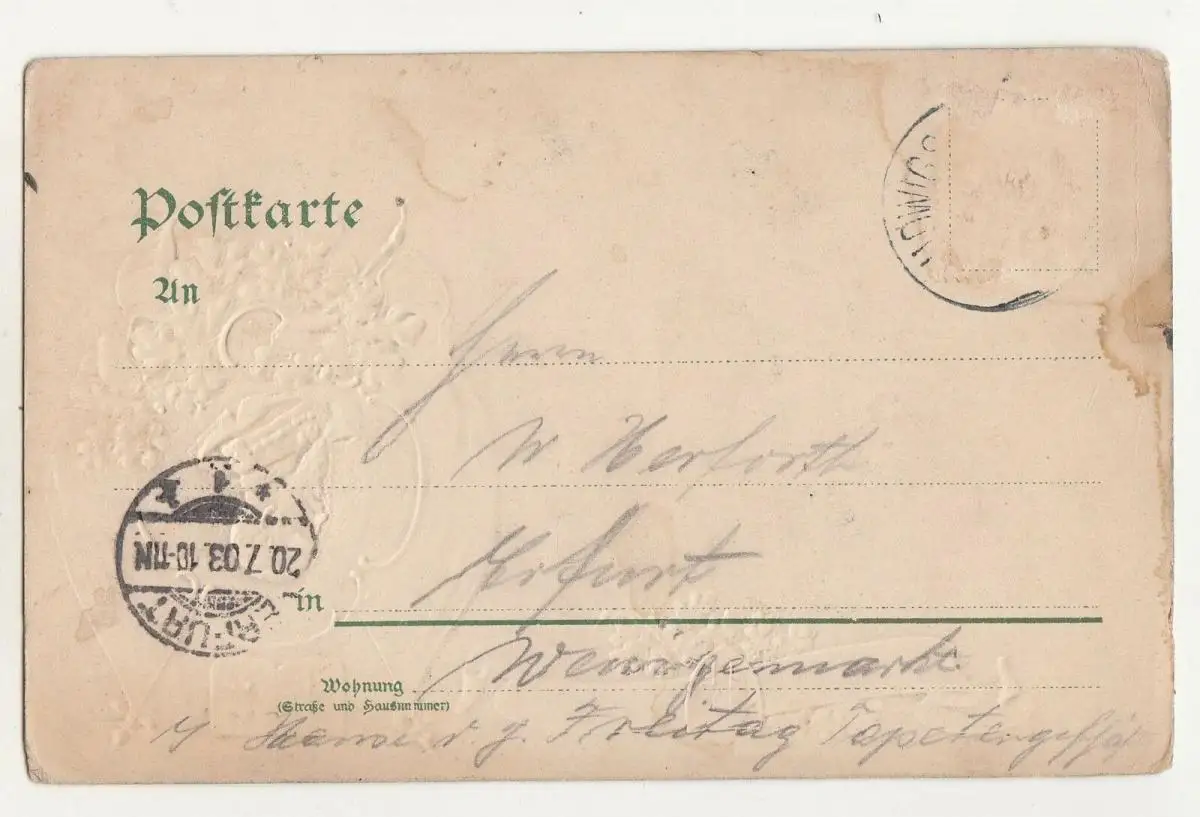 Postkarte
An
Herrn
W Herforth
Erfurt
in
Wenigenmarkt
Wohnung
(Straße und Hausnummer)
Freitag Tapetengesch
* 1 *
20.7.03.10-11N
ERFURT